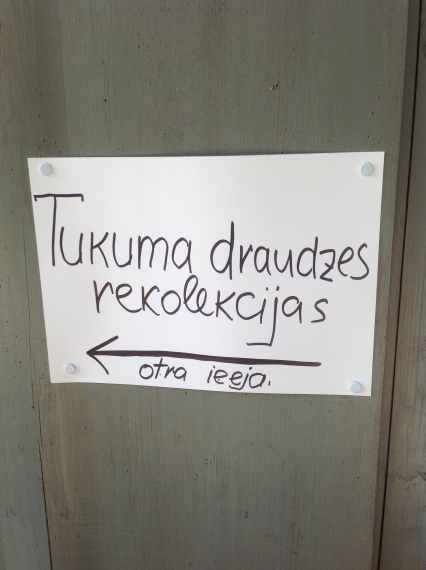 Tukuma draudzes
rekolekcijas
otra ieeja.